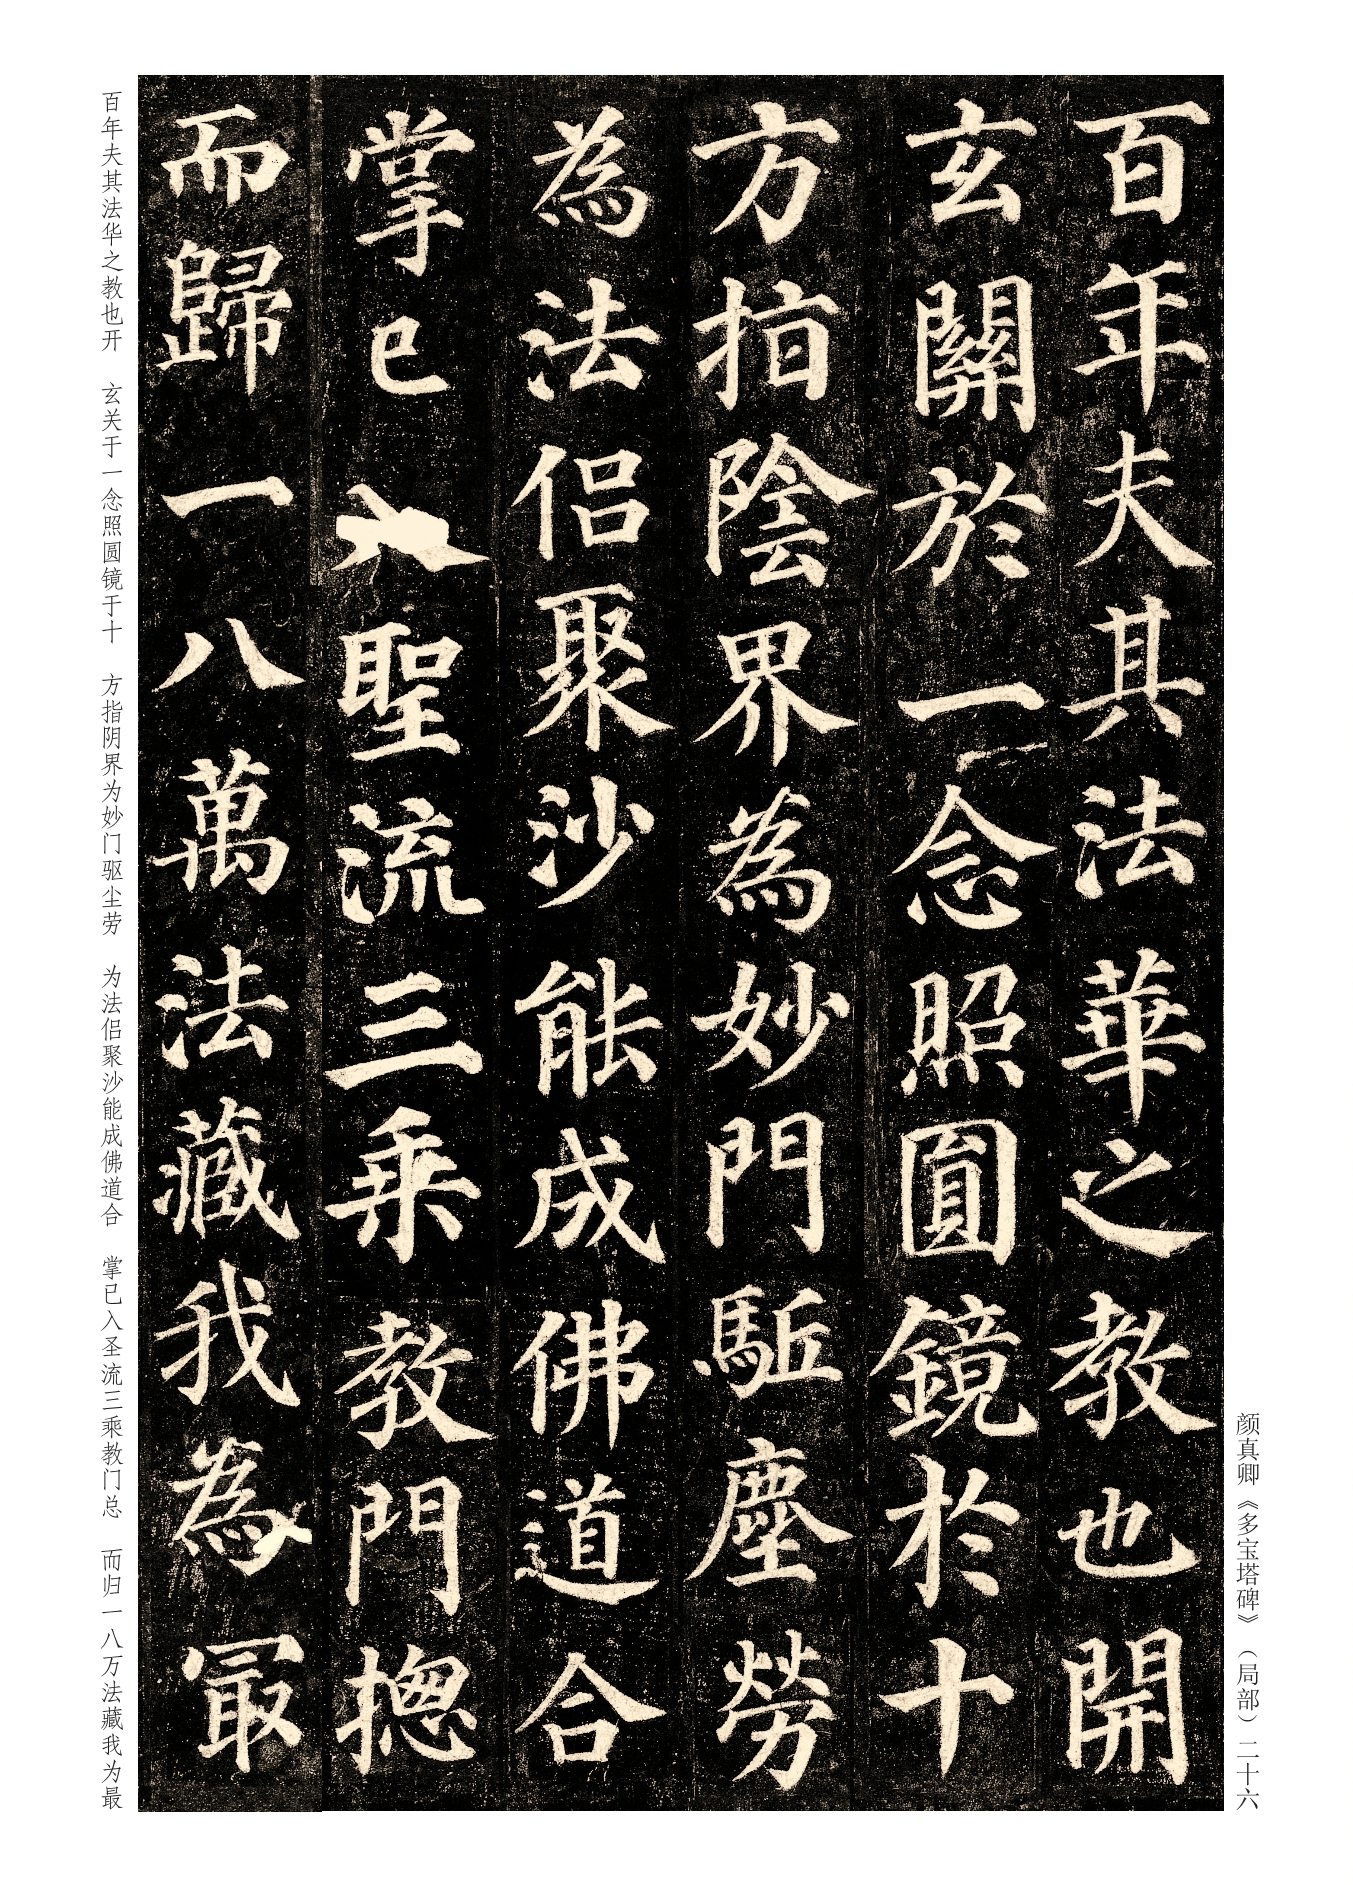 颜真卿《多宝塔碑》（局部）二十六
百年夫其法華之教也開
玄關於一念照圓鏡於十
方指陰界為妙門駈塵勞
為法侣聚沙能成佛道合
掌已入聖流三乗教門揔
而歸一八萬法藏我為冣
百年夫其法华之教也开　玄关于一念照圆镜于十　方指阴界为妙门驱尘劳　为法侣聚沙能成佛道合　掌已入圣流三乘教门总　而归一八万法藏我为最